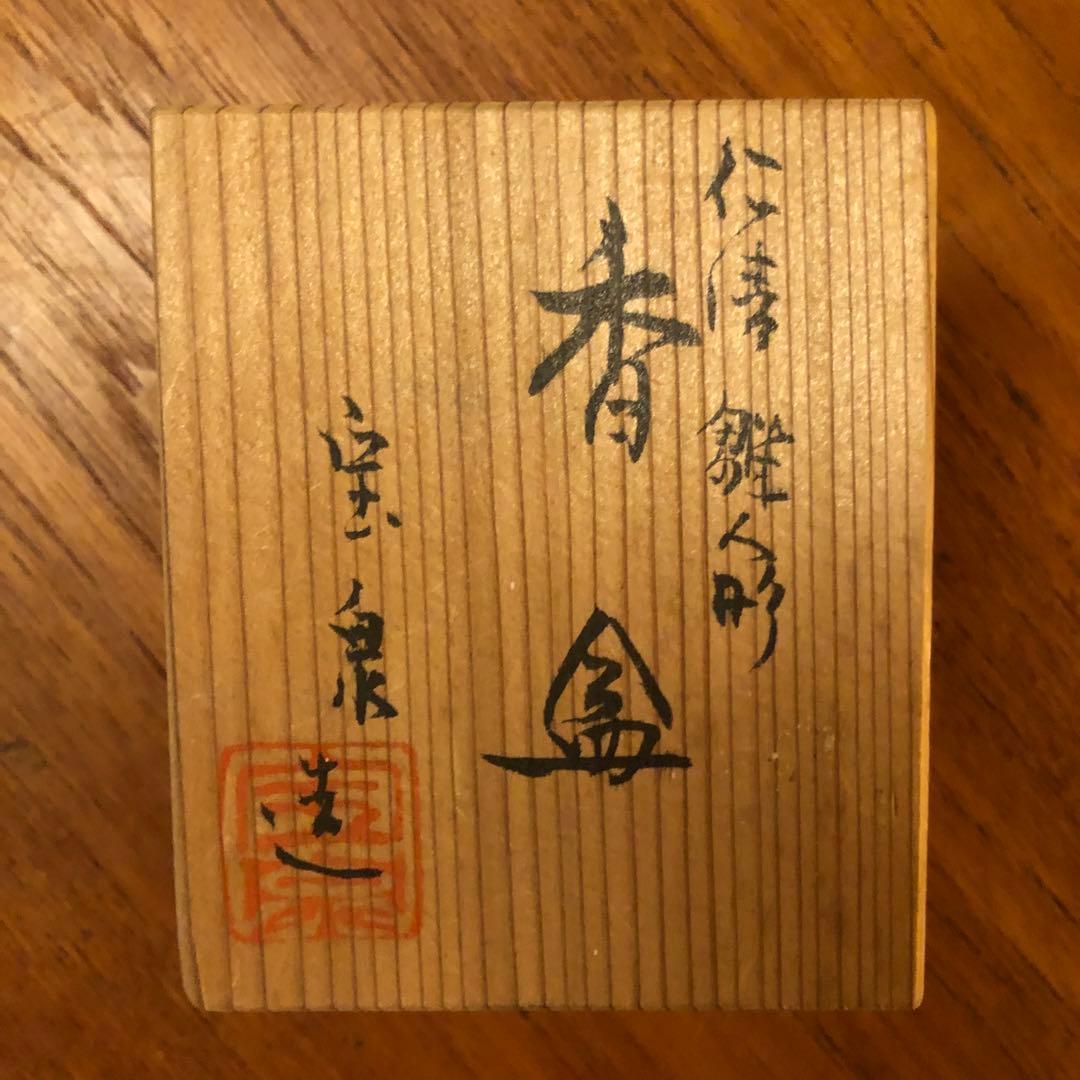 仁清 雛人形
香盒
宗泉造